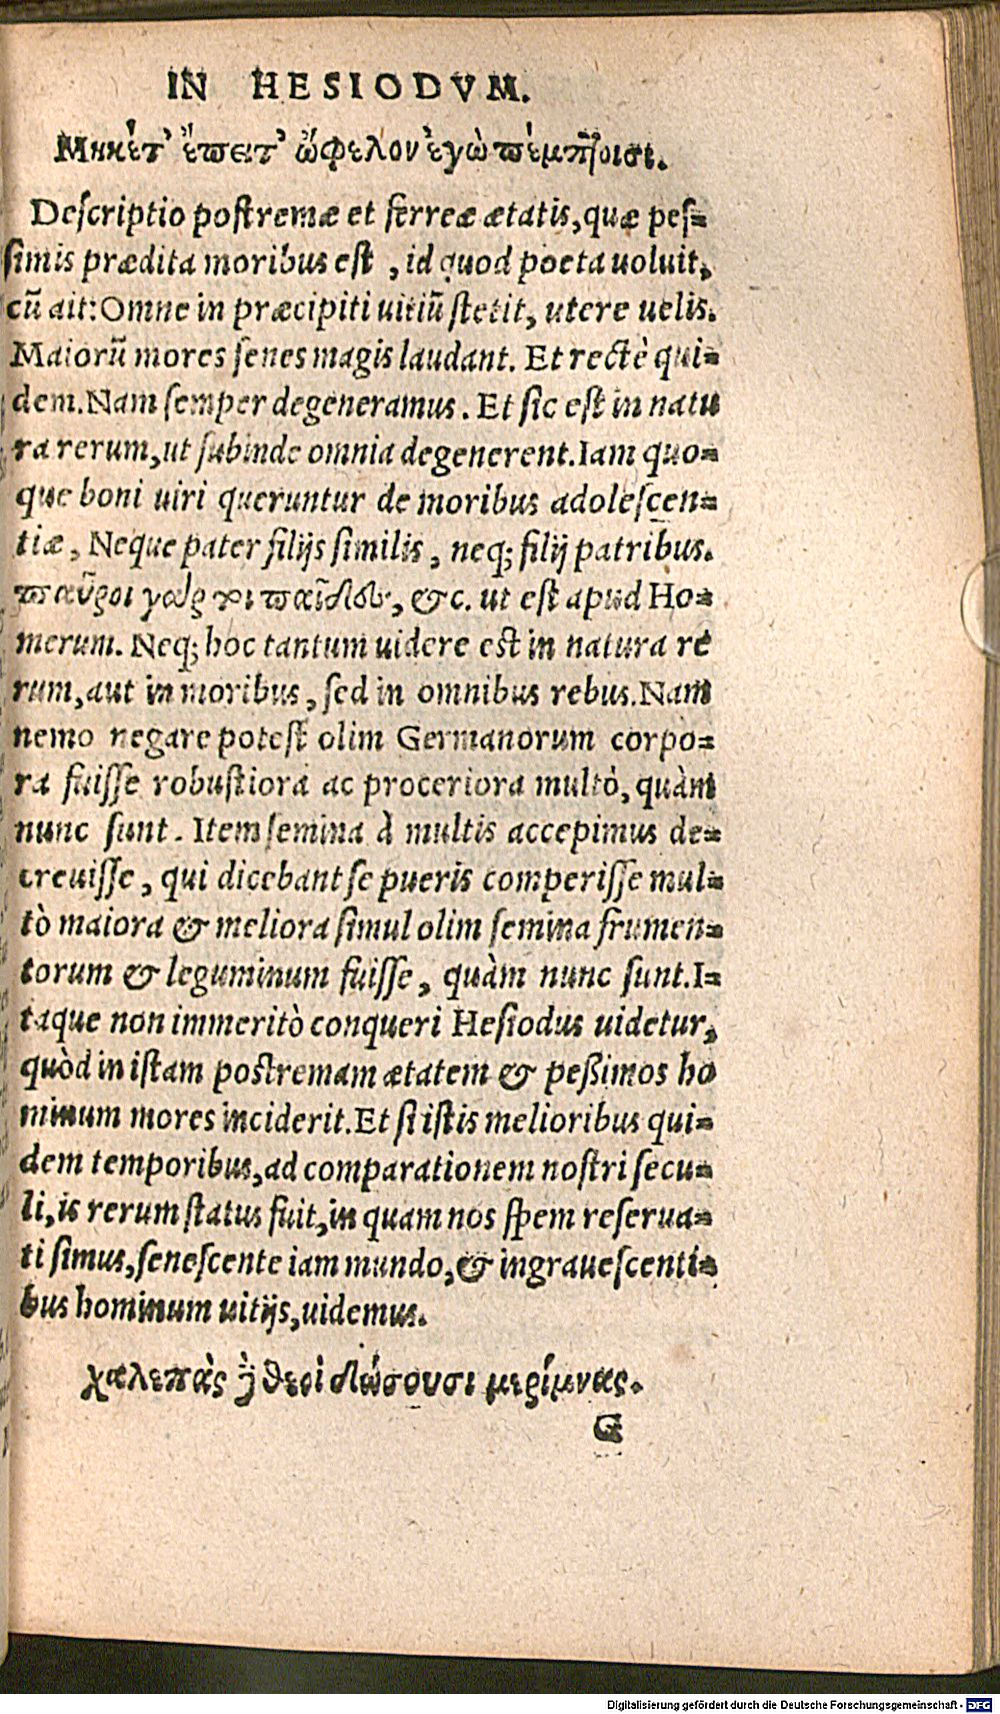 IN HESIODVM.
Μηκέτ' ἔπειτ' ὤφελον ἐγὼ πέμπτοισι.
Descriptio postremæ et ferreæ ætatis, quæ pes=
simis prædita moribus est , id quod poeta uoluit,
cū ait: Omne in præcipiti uitiū stetit, utere uelis.
Maiorū mores senes magis laudant. Et rectè qui=
dem. Nam semper degeneramus. Et sic est in natu
ra rerum, ut subinde omnia degenerent. Iam quo=
que boni uiri queruntur de moribus adolescen=
tiæ, Neque pater filijs similis, neq; filij patribus.
παῦροι γάρ τοι παῖδες, &c. ut est apud Ho=
merum. Neq; hoc tantum uidere est in natura re
rum, aut in moribus, sed in omnibus rebus. Nam
nemo negare potest olim Germanorum corpo=
ra fuisse robustiora ac proceriora multò, quàm
nunc sunt. Item semina à multis accepimus de=
creuisse, qui dicebant se pueris comperisse mul=
tò maiora & meliora simul olim semina frumen=
torum & leguminum fuisse, quàm nunc sunt. I=
taque non immeritò conqueri Hesiodus uidetur,
quòd in istam postremam ætatem & peßimos ho
minum mores inciderit. Et si istis melioribus qui=
dem temporibus, ad comparationem nostri secu=
li, is rerum status fuit, in quam nos spem reserua=
ti simus, senescente iam mundo, & ingrauescenti=
bus hominum uitijs, uidemus.
χαλεπὰς δὲ θεοὶ δώσουσι μερίμνας.
G
Digitalisierung gefördert durch die Deutsche Forschungsgemeinschaft - DFG